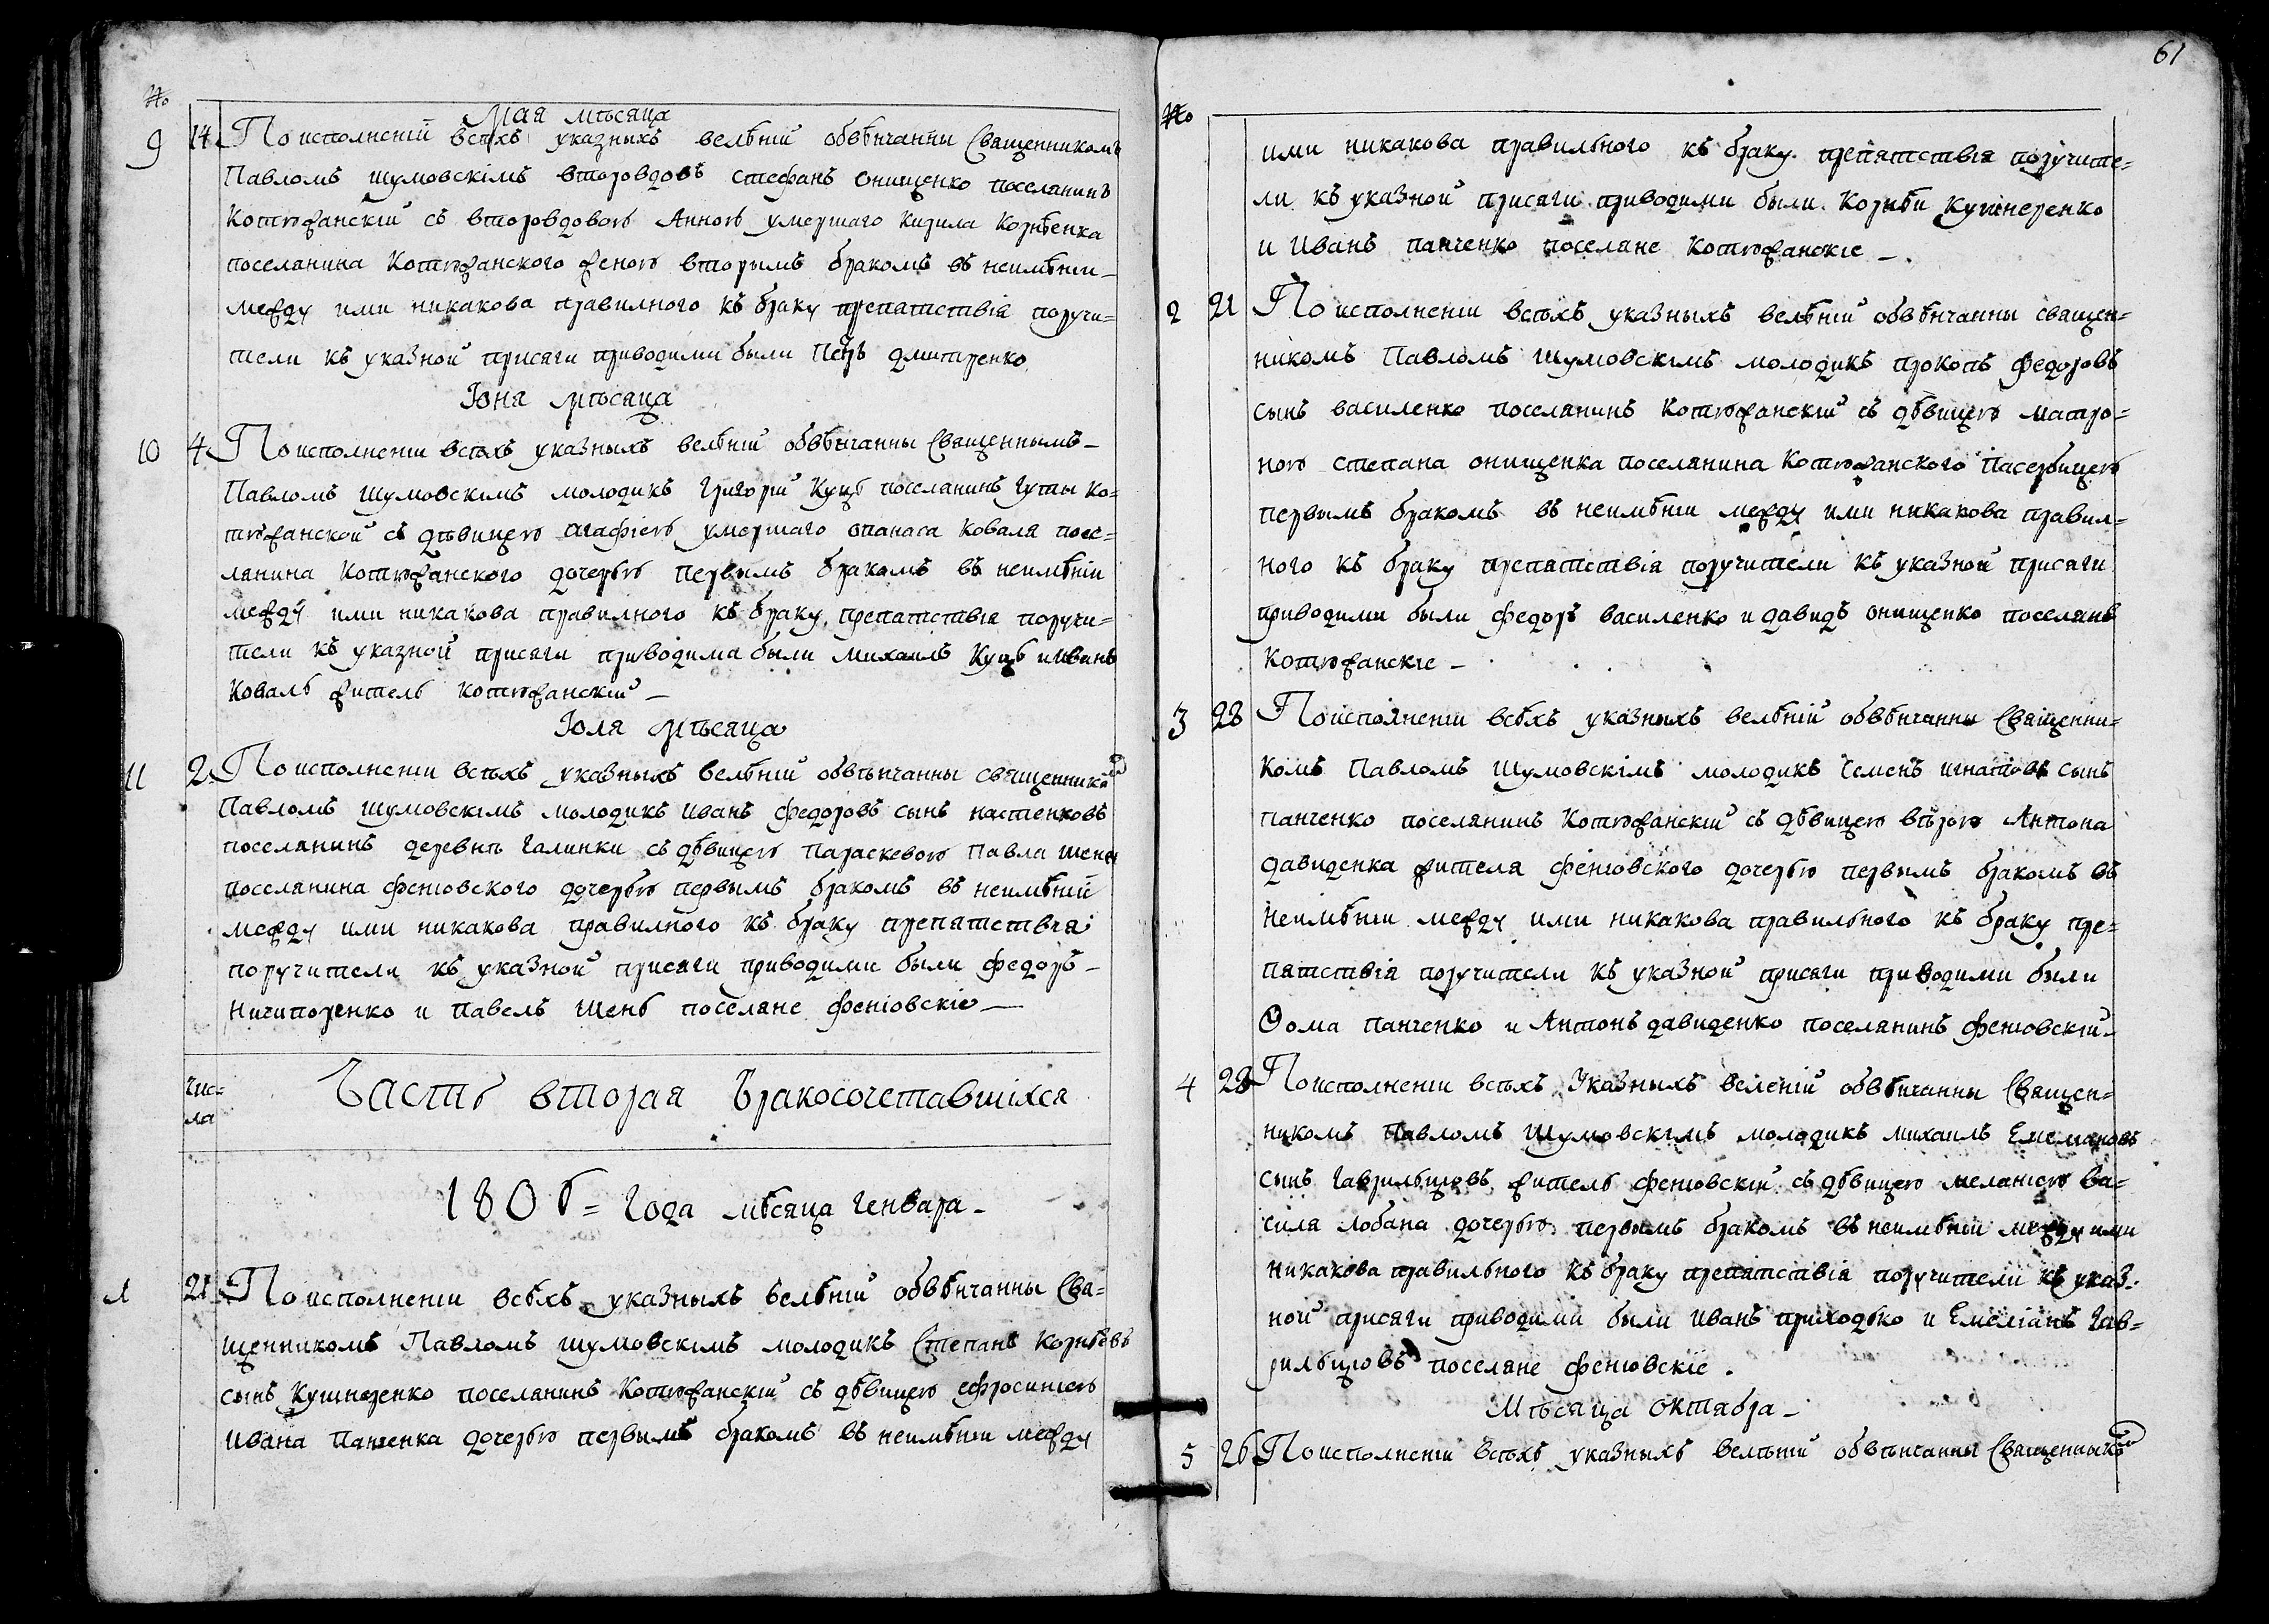 №
Мая мѣсяца
9 14 По исполненій всѣхъ указныхъ велѣній обвѣнчанны Священникомъ
Павломъ шумовскімъ второвдовъ стефанъ онищенко поселанинъ
Котюжанскій съ второвдовою Анною умершаго кирила Корнѣенка
поселанина Котюжанского женою вторымъ бракомъ въ неимѣніи
между ими никакова правилного къ браку препятствія поручи=
тели къ указной присяги приводими были Петръ дмитренко
Іюня мѣсяца
10 4 По исполненіи всѣхъ указныхъ велѣній обвѣнчанны Священнымъ
Павломъ Шумовскімъ молодикъ Григорій Куць поселанинъ Гуты Ко=
тюжанской съ дѣвицею агафією умершаго опанаса Коваля посе=
лянина Котюжанского дочерью первымъ бракомъ въ неимѣніи
между ими никакова правилного къ браку препятствія поручи=
тели къ указной присяги приводима были Михаилъ Куць и Иванъ
Коваль житель котюжанскій
Іюля мѣсяца
11 2 По исполненіи всѣхъ указныхъ велѣній обвѣнчанны священнико
Павломъ Шумовскімъ молодикъ Иванъ Федоровъ сынъ настенковъ
поселянинъ деревнѣ Галинки съ дѣвицею Параскевою Павла шеня
поселянина Феніовского дочерью первымъ бракомъ въ неимѣній
между ими никакова правилного къ браку препятствія
поручители къ указной присяги приводими были Федоръ
Ничипоренко и Павелъ Шень поселяне Феніовскіе
Чис=
ла
Часть вторая Бракосочетавшіхся
180б= Года мѣсяца Генваря
1 21 По исполненіи всѣхъ указныхъ велѣній обвѣнчанны Свя=
щенникомъ Павломъ шумовскімъ молодикъ Степанъ Корнѣевъ
сынъ Кушнеренко поселянинъ Котюжанскій съ дѣвицею ефросинією
Ивана Панченка дочерью первымъ бракомъ въ неимѣніи между
61
№
ими никакова правильного къ браку препятствія поручите=
ли къ указной присяги приводими были Корнѣй Кушнеренко
и Иванъ панченко поселяне котюжанскіе
2 21 По исполненіи всѣхъ указныхъ велѣній обвѣнчанны священ=
никомъ Павломъ Шумовскімъ молодикъ прокопъ Федоровъ
сынъ василенко поселянинъ котюжанскій съ дѣвицею матро=
ною степана онищенка поселянина Котюжанского пасербицею
первымъ бракомъ въ неимѣніи между ими никакова правил=
ного къ браку препятствія поручители къ указной присяги
приводими были федоръ василенко и давидъ онищенко поселянѣ
Котюжанскіе
3 28 По исполненіи всѣхъ указныхъ велѣній обвѣнчанны Священни=
комъ Павломъ Шумовскімъ молодикъ Семенъ игнатовъ сынъ
панченко поселянинъ Котюжанскій съ дѣвицею вѣрою Антона
давиденка жителя Феніовского дочерью первымъ бракомъ въ
неимѣніи между ими никакова правильного къ браку пре=
пятствія поручители къ указной присяги приводими были
Ѳома панченко и Антонъ давиденко поселянинъ феніовскій
4 28 По исполненіи всѣхъ Указныхъ веленій обвѣнчанны Священ=
никомъ Павломъ Шумовскімъ молодикъ михаилъ Емеляновъ
сынъ Гаврильцовъ житель феніовскій съ дѣвицею меланією ва=
силя лобана дочерью первымъ бракомъ въ неимѣніи между ими
никакова правильного къ браку препятствія поручители къ указ=
ной присяги приводими были иванъ приходько и Емеліанъ Гав=
рильцовъ поселяне феніовскіе.
Мѣсяца октабра
5 26 По исполненіи всѣхъ указныхъ велѣній обвѣнчанны Священникомъ